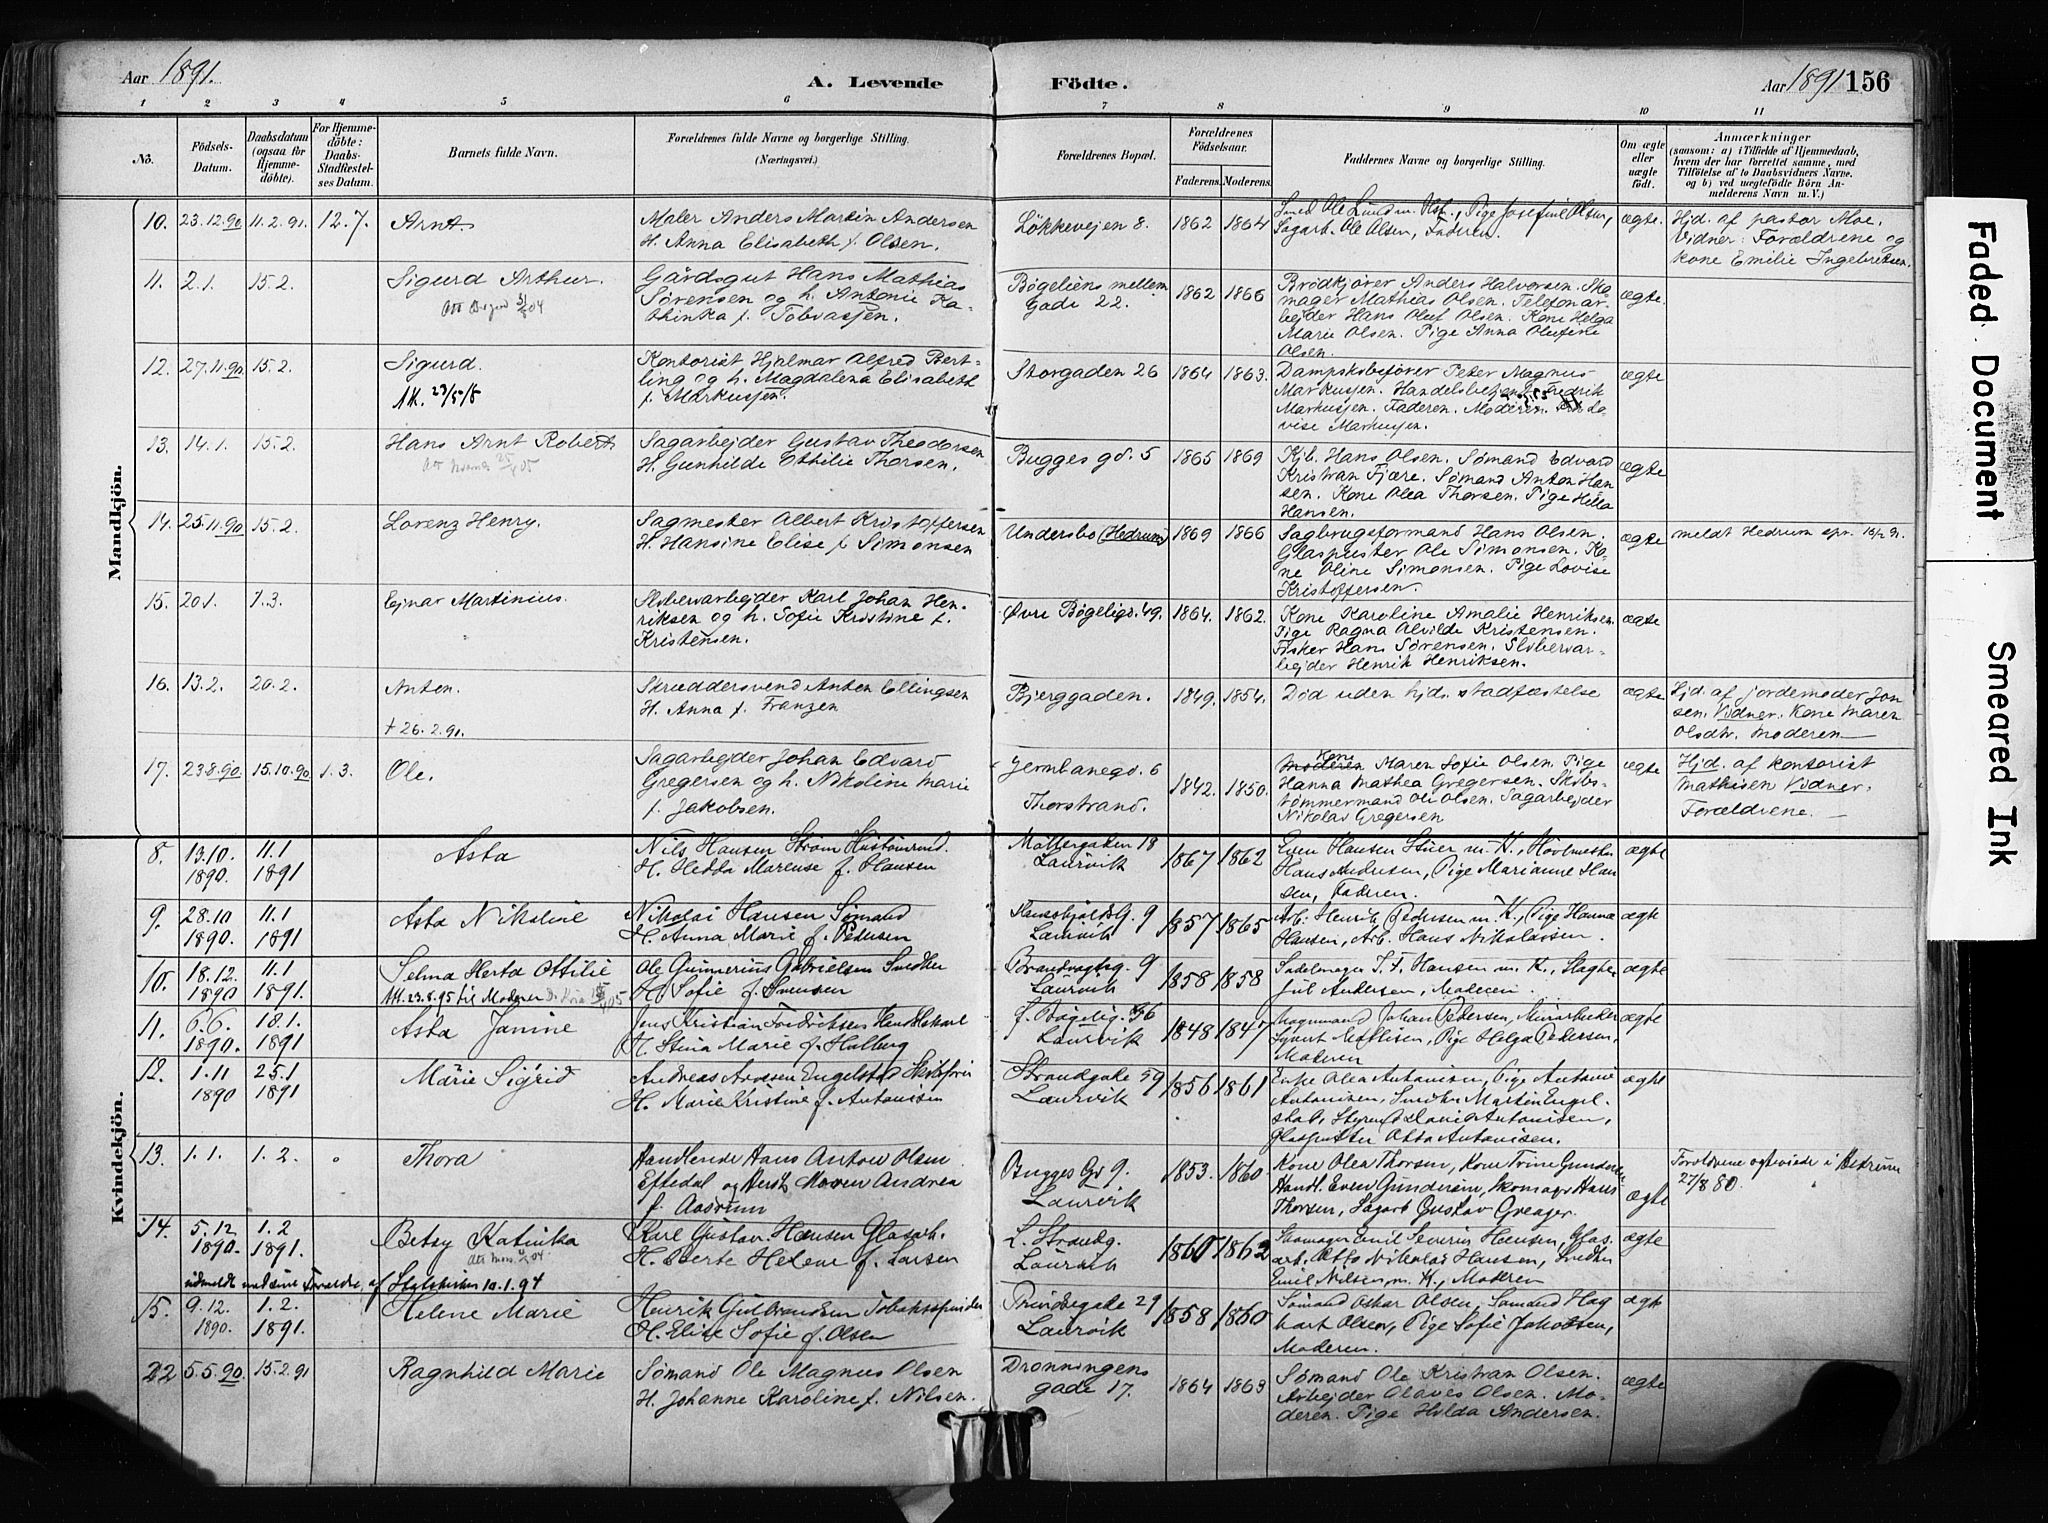 Aar 1891.
A. Levende Födte.
Aar 1891 156
1 2 3 4 5 6 7 8 9 10 11
No.
Födsels-Datum.
Daabsdatum (ogsaa for Hjemme-döbte).
For Hjemme-döbte: Daabs-Stadfæstel-ses Datum.
Barnets fulde Navn.
Forældrenes fulde Navne og borgerlige Stilling.
(Næringsvei.)
Forældrenes Bopæl.
Forældrenes Födselsaar.
Faderens. Moderens.
Faddernes Navne og borgerlige Stilling.
Om ægte eller uægte födt.
Anmærkninger
(saasom: a) i Tilfælde af Hjemmedaab, hvem der har forrettet samme, med Tilföielse af to Daabsvidners Navne, og b) ved uægtefödte Börn Anmelderens Navn m. V.)
Mandkjön.
10. 23.12.90 11.2.91. 12.7. Arnt
Maler Anders Martin Andersen
H. Anna Elisabeth f. Olsen.
Løkkevejen 8. 1862 1864
Smed Ole Lund m. Hst., Pige Josefine Olsen,
Sagarb. Ole Olsen, Faderen.
ægte.
Hjd. af pastor Moe.
Vidner: Forældrene og
kone Emilie Ingebriksen.
11. 2.1. 15.2. Sigurd Arthur.
Gårdsgut Hans Mathias
Sørensen og h. Antonie Ka-
thinka f. Tobiassen.
Bøgeliens mellem
Gade 22. 1862 1866
Brødkjører Anders Halvorsen. Sko-
mager Mathias Olsen. Telefonar-
bejder Hans Oluf Olsen. Kone Helga
Marie Olsen. Pige Anna Olufine
Olsen.
ægte.
12. 27.11.90 15.2. Sigurd.
Att. 23/5/8
Kontorist Hjalmar Alfred Bert-
ling og h. Magdalena Elisabeth
f. Markussen.
Storgaden 26 1864 1863.
Dampskbsfører Peter Magnus
Markussen. Handelsbetjent Fredrik
Markussen. Faderen. Moderen. Lo
vise Markussen.
ægte
13. 14.1. 15.2. Hans Arnt Robert
Sagarbejder Gustav Theodorsen
H. Gunhilde Othilie Thorsen.
Bugges gd. 5 1865 1869
Kjb. Hans Olsen. Sømand Edvard
Kristian Fjære. Sømand Anton Han
sen. Kone Olea Thorsen. Pige Hilda
Hansen.
ægte
14. 25.11.90 15.2. Lorenz Henry.
Sagmester Albert Kristoffersen
H. Hansine Elise f. Simonsen
Undersbo (Hedrum) 1869 1866
Sagbrugsformand Hans Olsen.
Glaspuster Ole Simonsen. Ko-
ne Oline Simonsen. Pige Lovise
Kristoffersen.
ægte
meldt Hedrum spr.
15. 20.1. 1.3. Ejnar Martinius.
Slibervarbejder Karl Johan Hen-
riksen og h. Sofie Kristine f.
Kristensen.
Øvre Bøgeligd. 49. 1864. 1862.
Kone Karoline Amalie Henriksen.
Pige Ragna Alvilde Kristensen.
Fisker Hans Sørensen. Slibervar-
bejder Henrik Henriksen.
ægte
16. 13.2. 20.2. Anten.
+ 26.2.91.
Skræddersvend Anten Ellingsen
H. Anna f. Franzen
Bjerggaden. 1849. 1854.
Død uden hjds. stadfæstelse
ægte
Hjd. af jordemoder Jon
sen. Vidner. Kone Maren
Olsdtr. Moderen
17. 23.8.90. 15.10.90 1.3. Ole.
Sagarbejder Johan Edvard
Gregersen og h. Nikoline Marie
f. Jakobsen.
Jernbanegd. 6
Thorstrand. 1842. 1850.
Moderen Kone Maren Sofie Olsen. Pige
Hanna Mathea Gregersen. Skibs-
tømmermand Ole Olsen. Sagarbejder
Nikolai Gregersen
ægte
Hjd. af kontorist
Mathisen Vidner.
Forældrene.
Kvindekjön.
8. 13.10. 1890. 11.1 1891 Asta
Nils Hansen Strøm
H. Hedda Marense f. Hansen
Møllergaden 18
Laurvik 1867 1862
Even Hansen Stuer m. K., Høvlmester
Hans Andersen, Pige Marianne Han
sen, Faderen.
ægte
9. 28.10 1890. 11.1 1891 Asta Nikoline
Nikolai Hansen Sømand
H. Anna Marie f. Pedersen
G. 9
Laurvik 1857 1865
Arb. Henrik Pedersen m. K., Pige Hanna
Hansen, Arb. Hans Nikolaisen.
ægte
10. 18.12. 1890 11.1 1891. Selma Herta Ottilie
Att. 23.8.95 til Moderen
Ole Gunnerius Gabrielsen Snedker
H. Sofie f. Svensen
Brandvagtsg. 9
Laurvik 1858 1858
Sadelmager J. F. Hansen m. K., Slagter
Jul. Andersen, Moderen.
ægte
11. 6.6. 1890. 18.1. 1891 Asta Janine
Jens Kristian Fredriksen Handelskarl
H. Stina Marie f. Hallberg
Bøgelig.
Laurvik 1848 1847
Vognmand Johan Pedersen, Murarbeider
Syvert Mathisen, Pige Helga Pedersen,
Moderen
ægte
12. 1.11 1890 25.1 1891 Marie Sigrid
Andreas Arvesen Engelstad Skibsfører
H. Marie Kristine f. Antonisen
Strandgade 59
Laurvik 1856 1861
Enke Olea Antonisen, Pige Antonie
Antonisen, Snedker Martin Engel-
stad, Styrmd David Antonisen,
Glaspuster Otto Antonisen.
ægte
13. 1.1. 1.2. Thora
Handlende Hans Anton Olsen
Eftedal og Hust. Maren Andrea
f. Aasrum
Bugges Gd 9.
Laurvik 1853. 1860
Kone Olea Thorsen, Kone Trine Gundersen
Handl. Even Gundersen, Skomager Hans
Thorsen, Sagarb Gustav Greager.
ægte
Forældrene ægteviede i Hedrum
27/8 80.
14. 5.12 1890. 1.2 1891. Betsy Katinka
Karl Gustav Hansen Glasarb.
H. Berte Helene f. Larsen
L. Strandg.
Laurvik 1860 1862
Skomager Emil Severin Hansen, Glas
arb. Otto Nikolai Hansen, Snedker
Emil Nilsen m. K., Moderen
ægte
udmeldt med sine Forældre af Statskirken 10.1.94
15. 9.12. 1890. 1.2. 1891. Helene Marie
Henrik Gulbrandsen Tobakspinder
H. Elise Sofie f. Olsen
Prindsegade 29
Laurvik 1858 1860
Sømand Oskar Olsen, Sømand Hag
bart Olsen, Pige Sofie Jakobsen,
Moderen.
ægte
22 5.5.90. 15.2.91 Ragnhild Marie
Sømand Ole Magnus Olsen
H. Johanne Karoline f. Nilsen.
Dronningens
gade 17. 1864 1863
Sømand Ole Kristian Olsen.
Arbejder Olaves Olsen. Mo-
deren. Pige Hilda Andersen.
ægte
Faded Document
Smeared Ink